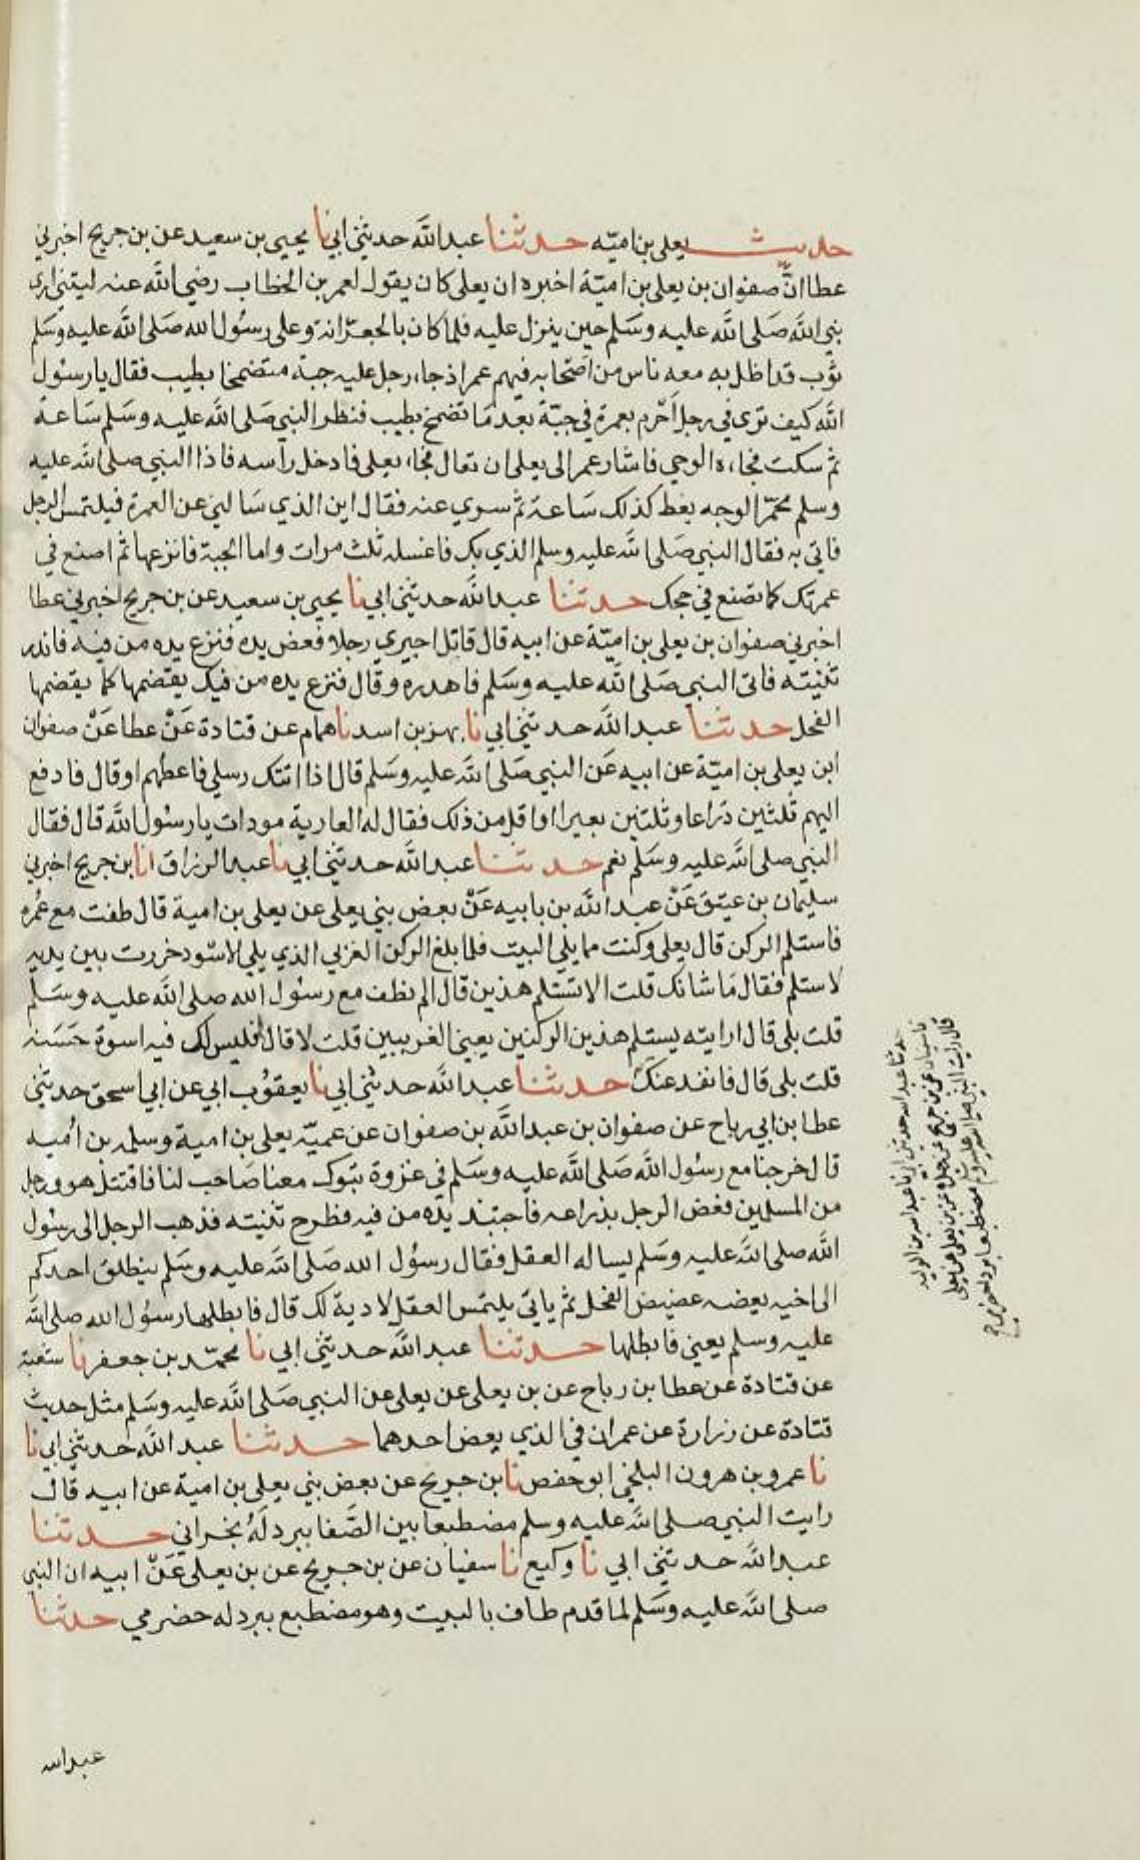 حديث يعلى بن اميّه حدثنا عبد الله حدثني ابي نا يحيى بن سعيد عن بن جريج اخبرني
عطا انّ صفوان بن يعلى بن اميّة اخبره ان يعلى كان يقول لعمر بن الخطاب رضي الله عنه ليتني ارى
نبي الله صلى الله عليه وسلم حين ينزل عليه فلما كان بالجعرّانة وعلى رسول الله صلى الله عليه وسلم
ثوب قد اظل به معه ناس من اصحابه فيهم عمر اذ جاء رجل عليه جبة متضمخا بطيب فقال يا رسول
الله كيف ترى في رجل احرم بعمرة في جبّة بعد ما تضمخ بطيب فنظر النبي صلى الله عليه وسلم ساعة
ثم سكت فجاءه الوحي فاشار عمر الى يعلى ان تعال فجاء يعلى فادخل راسه فاذا النبي صلى الله عليه
وسلم محمّر الوجه يغط كذلك ساعة ثم سوي عنه فقال اين الذي سالني عن العمرة فيلتمس الرجل
فاتي به فقال النبي صلى الله عليه وسلم الذي بك فاغسله ثلث مرات واما الجبة فانزعها ثم اصنع في
عمرتك كما تصنع في حجك حدثنا عبد الله حدثني ابي نا يحيى بن سعيد عن بن جريج اخبرني عطا
اخبرني صفوان بن يعلى بن اميّة عن ابيه قال قاتل اجيري رجلا فعض يده فنزع يده من فيه فاندر
ثنيته فاتى النبي صلى الله عليه وسلم فاهدره وقال فنزع يده من فيك يقضمها كما يقضمها
الفحل حدثنا عبد الله حدثني ابي نا بهز بن اسد نا همام عن قتادة عن عطا عن صفوان
ابن يعلى بن اميّة عن ابيه عن النبي صلى الله عليه وسلم قال اذا اتتك رسلي فاعطهم او قال فادفع
اليهم ثلثين دراعا وثلثين بعيرا او اقل من ذلك فقال له العارية مودات يا رسول الله قال فقال
النبي صلى الله عليه وسلم نعم حدثنا عبد الله حدثني ابي نا عبد الرزاق انا بن جريج اخبرني
سليمان بن عتيق عن عبد الله بن بابيه عن بعض بني يعلى عن يعلى بن امية قال طفت مع عمر
فاستلم الركن قال يعلى وكنت مما يلي البيت فلما بلغ الركن الغربي الذي يلي الاسود خررت بين يديه
لاستلم فقال ما شانك قلت الا تستلم هذين قال الم نطف مع رسول الله صلى الله عليه وسلم
قلت بلى قال ارايته يستلم هذين الركنين يعني الغربيين قلت لا قال افليس لك فيه اسوة حسنه
قلت بلى قال فانفد عنك حدثنا عبد الله حدثني ابي نا يعقوب ابي عن ابي اسحق حدثني
عطا بن ابي رباح عن صفوان بن عبد الله بن صفوان عن عميّه يعلى بن امية وسلمه بن اميه
قال خرجنا مع رسول الله صلى الله عليه وسلم في غزوة تبوك معنا صاحب لنا فاقتتل هو ورجل
من المسلمين فعض الرجل بذراعه فاجتبذ يده من فيه فطرح ثنيته فذهب الرجل الى رسول
الله صلى الله عليه وسلم يساله العقل فقال رسول الله صلى الله عليه وسلم ينطلق احدكم
الى اخيه يعضه عضيض الفحل ثم ياتي يلتمس العقل لا دية لك قال فابطلها رسول الله صلى الله
عليه وسلم يعني فابطلها حدثنا عبد الله حدثني ابي نا محمّد بن جعفر نا شعبة
عن قتادة عن عطا بن رباح عن بن يعلى عن يعلى عن النبي صلى الله عليه وسلم مثل حديث
قتادة عن زرارة عن عمران في الذي يعض احدهما حدثنا عبد الله حدثني ابي نا
نا عمرو بن هرون البلخي ابو حفص نا بن جريج عن بعض بني يعلى بن امية عن ابيه قال
رايت النبي صلى الله عليه وسلم مضطبعا بين الصّفا ببرد لهُ نجراني حدثنا
عبد الله حدثني ابي نا وكيع نا سفيان عن بن جريج عن بن يعلى عن ابيه ان النبي
صلى الله عليه وسلم لما قدم طاف بالبيت وهو مضطبع ببرد له حضرمي حدثنا
عبد الله
حدثنا عبد الله حدثني ابي نا عبد الله بن الوليد
نا سفيان عن بن جريج عن رجل عن بن يعلى عن يعلى
قال رايت النبي صلى الله عليه وسلم مضطبعا برداء حضرمي